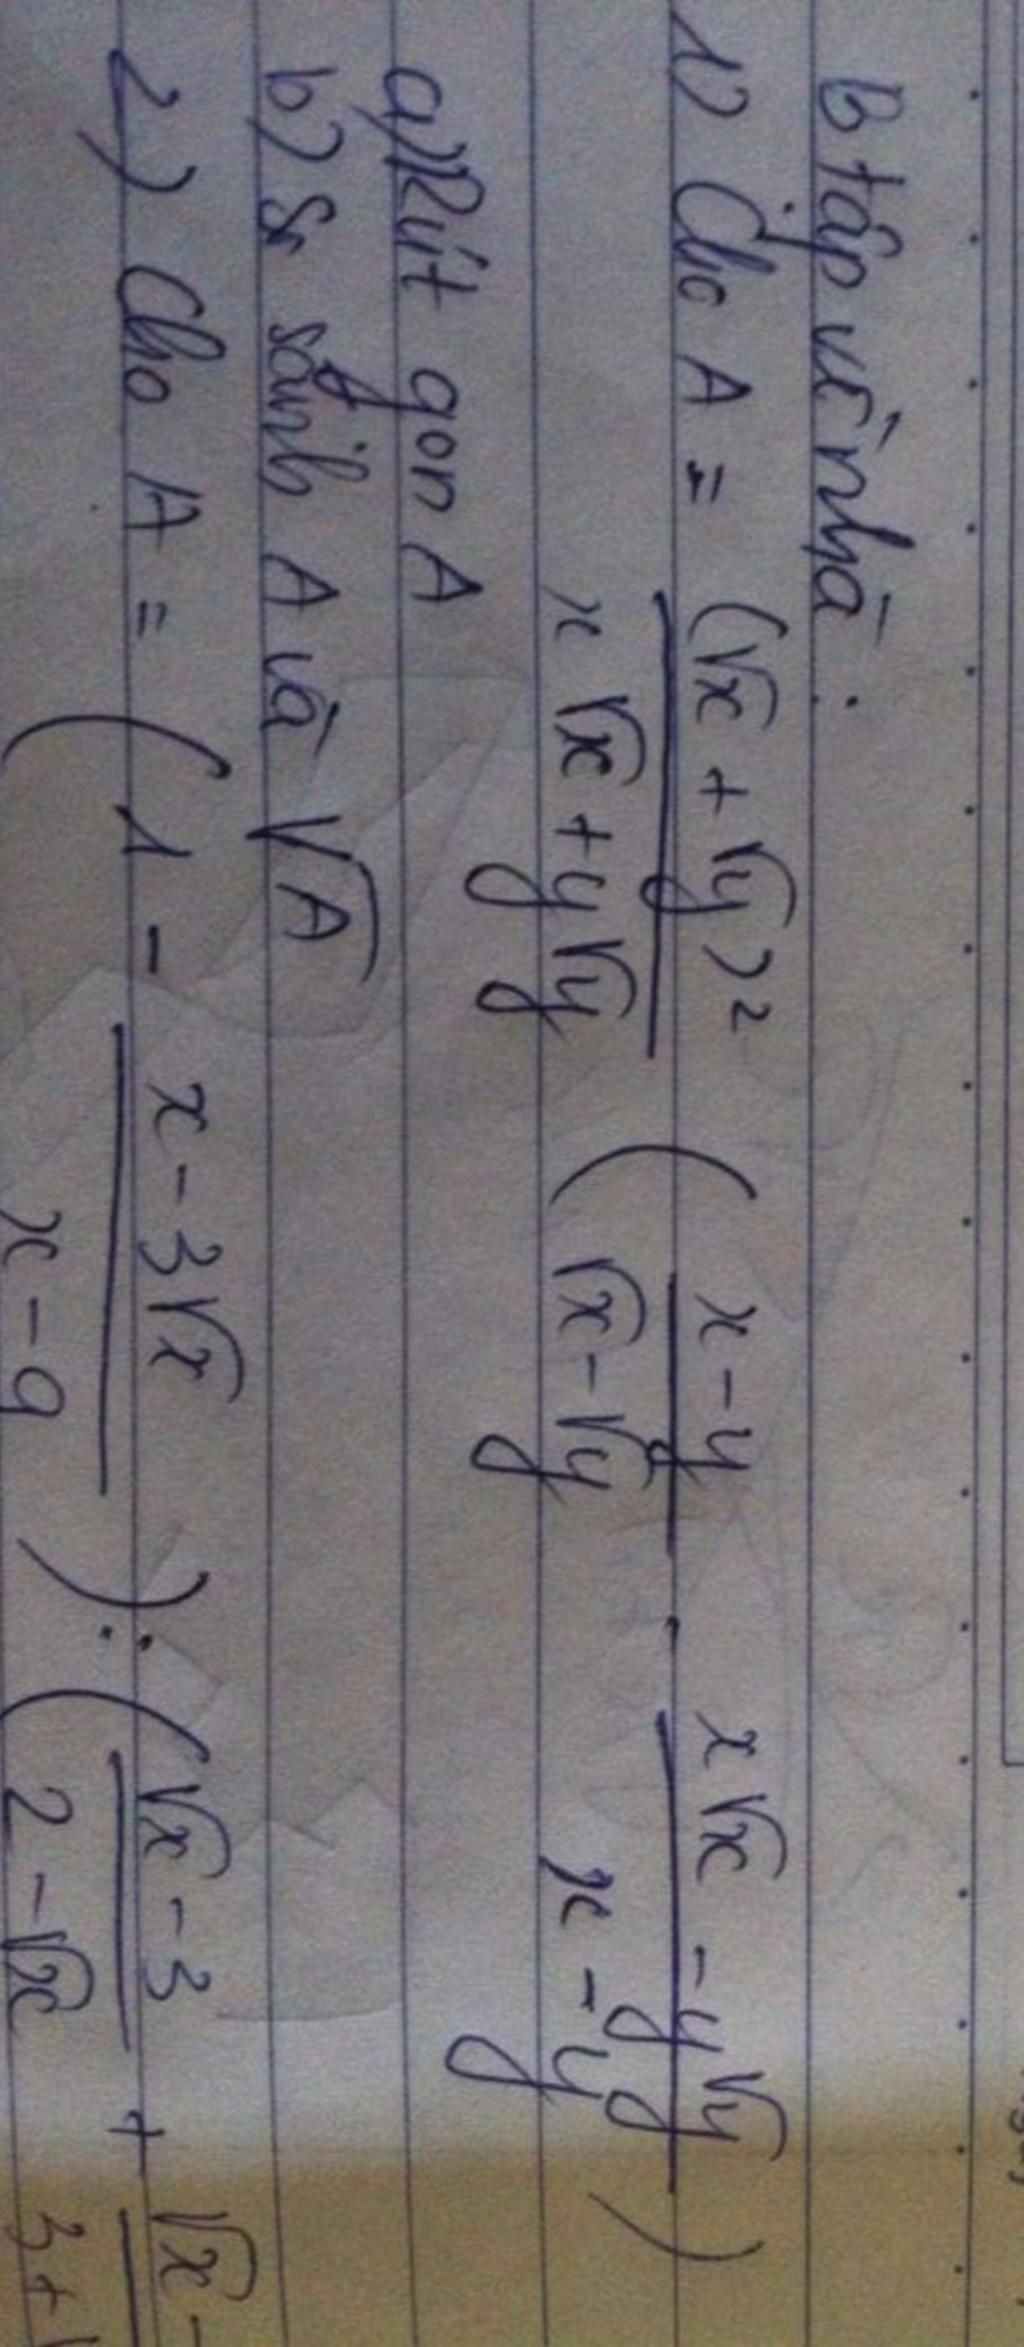 B tập về nhà:
1) Cho A = (√x + √y)² / (x√x + y√y) ( (x - y) / (√x - √y) - (x√x - y√y) / (x - y) )
a) Rút gọn A
b) So sánh A và √A
2) Cho A = ( 1 - (x - 3√x) / (x - 9) ) : ( (√x - 3) / (2 - √x) + (√x - / 3 +